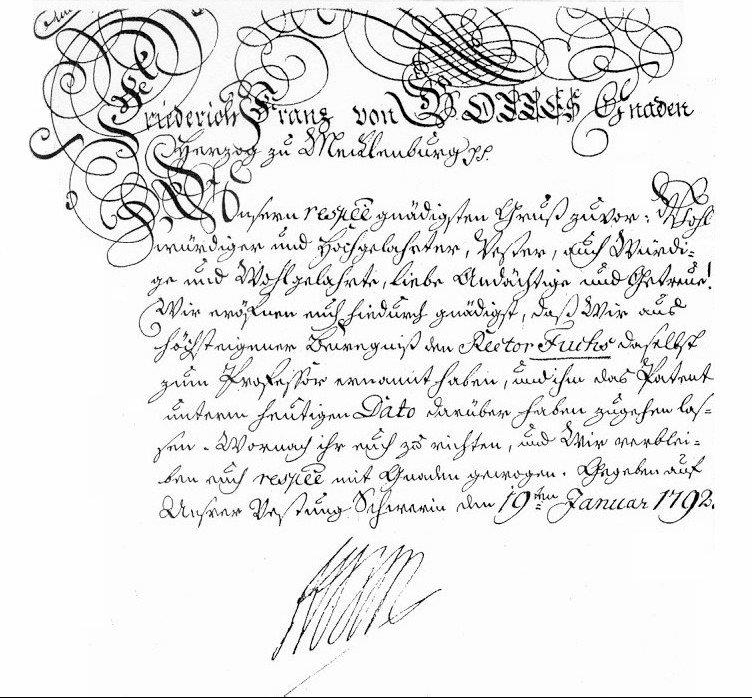 Friederich Franz von GOTTES Gnaden
Herzog zu Mecklenburg pp.
Unsern respee gnädigsten Gruß zuvor: Wohl
würdiger und Hochgelahrter, Vester, auch Würdi-
ge und Wohlgelahrte, liebe Andächtige und Getreue!
Wir eröfnen euch hiedurch gnädigst, daß Wir aus
höchsteigener Bewegniß den Rector Fuchs daselbst
zum Professor ernannt haben, und ihm das Patent
unterm heutigen Dato darüber haben zugehen las-
sen. Wornach ihr euch zu richten, und Wir verblei-
ben euch respee mit Gnaden gewogen. Gegeben auf
Unsrer Vestung Schwerin den 19ten Januar 1792.